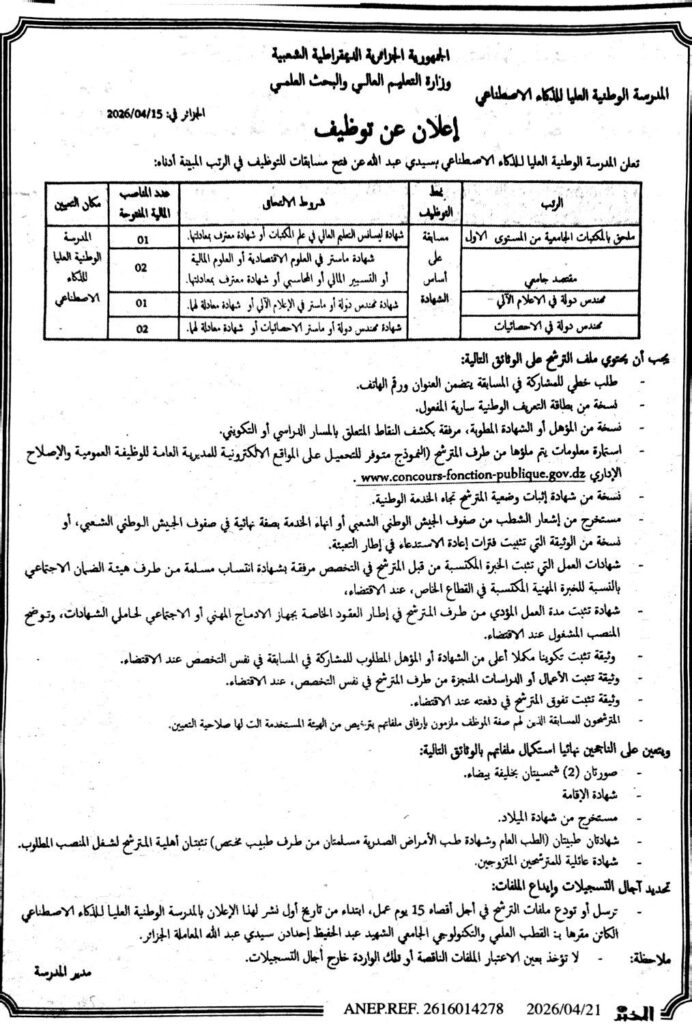 الجمهورية الجزائرية الديمقراطية الشعبية
وزارة التعليم العالي والبحث العلمي
المدرسة الوطنية العليا للذكاء الاصطناعي
الجزائر في: 2026/04/15
إعلان عن توظيف
تعلن المدرسة الوطنية العليا للذكاء الاصطناعي بسيدي عبد الله عن فتح مسابقات للتوظيف في الرتب المبينة أدناه:
الرتب
نمط التوظيف
شروط الالتحاق
عدد المناصب المالية المفتوحة
مكان التعيين
ملحق بالمكتبات الجامعية من المستوى الاول
مسابقة على أساس الشهادة
شهادة ليسانس التعليم العالي في علم المكتبات أو شهادة معترف بمعادلتها.
01
المدرسة الوطنية العليا للذكاء الاصطناعي
مقتصد جامعي
شهادة ماستر في العلوم الاقتصادية أو العلوم المالية
أو التسيير المالي أو المحاسبي أو شهادة معترف بمعادلتها.
02
مهندس دولة في الاعلام الآلي
شهادة مهندس دولة أو ماستر في الإعلام الآلي أو شهادة معادلة لها.
01
مهندس دولة في الاحصائيات
شهادة مهندس دولة أو ماستر الاحصائيات أو شهادة معادلة لها.
02
يجب أن يحتوي ملف الترشح على الوثائق التالية:
- طلب خطي للمشاركة في المسابقة يتضمن العنوان ورقم الهاتف.
- نسخة من بطاقة التعريف الوطنية سارية المفعول.
- نسخة من المؤهل أو الشهادة المطلوبة، مرفقة بكشف النقاط المتعلق بالمسار الدراسي أو التكويني.
- استمارة معلومات يتم ملؤها من طرف المترشح (النموذج متوفر للتحميل على المواقع الالكترونية للمديرية العامة للوظيفة العمومية والإصلاح
الإداري www.concours-fonction-publique.gov.dz .
- نسخة من شهادة إثبات وضعية المترشح تجاه الخدمة الوطنية.
- مستخرج من إشعار الشطب من صفوف الجيش الوطني الشعبي أو انهاء الخدمة بصفة نهائية في صفوف الجيش الوطني الشعبي، أو
نسخة من الوثيقة التي تثبيت فترات إعادة الاستدعاء في إطار التعبئة.
- شهادات العمل التي تثبت الخبرة المكتسبة من قبل المترشح في التخصص مرفقة بشهادة انتساب مسلمة من طرف هيئة الضمان الاجتماعي
بالنسبة للخبرة المهنية المكتسبة في القطاع الخاص، عند الاقتضاء،
- شهادة تثبت مدة العمل المؤدي من طرف المترشح في إطار العقود الخاصة بجهاز الادماج المهني أو الاجتماعي لحاملي الشهادات، وتوضح
المنصب المشغول عند الاقتضاء.
- وثيقة تثبت تكوينا مكملا أعلى من الشهادة أو المؤهل المطلوب للمشاركة في المسابقة في نفس التخصص عند الاقتضاء.
- وثيقة تثبت الأعمال أو الدراسات المنجزة من طرف المترشح في نفس التخصص، عند الاقتضاء.
- وثيقة تثبت تفوق المترشح في دفعته عند الاقتضاء.
- المترشحون للمسابقة الذين لهم صفة الموظف ملزمون بإرفاق ملفاتهم بترخيص من الهيئة المستخدمة الت لها صلاحية التعيين.
ويتعين على الناجحين نهائيا استكمال ملفاتهم بالوثائق التالية:
- صورتان (2) شمسيتان بخليفة بيضاء.
- شهادة الإقامة
- مستخرج من شهادة الميلاد.
- شهادتان طبيتان (الطب العام وشهادة طب الأمراض الصدرية مسلمتان من طرف طبيب مختص) تثبتان أهلية المترشح لشغل المنصب المطلوب.
- شهادة عائلية للمترشحين المتزوجين.
تحديد آجال التسجيلات وإيداع الملفات:
- ترسل أو تودع ملفات الترشح في أجل أقصاه 15 يوم عمل، ابتداء من تاريخ أول نشر لهذا الإعلان بالمدرسة الوطنية العليا للذكاء الاصطناعي
الكائن مقرها بـ: القطب العلمي والتكنولوجي الجامعي الشهيد عبد الحفيظ إحدادن سيدي عبد الله المعاملة الجزائر.
ملاحظة: - لا تؤخذ بعين الاعتبار الملفات الناقصة أو تلك الواردة خارج أجال التسجيلات.
مدير المدرسة
الخبر 2026/04/21 ANEP.REF. 2616014278